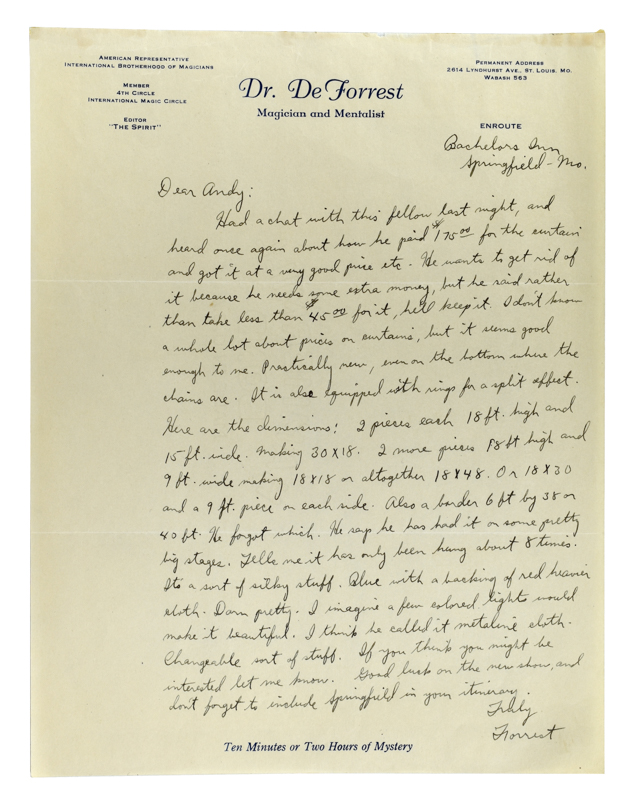 AMERICAN REPRESENTATIVE
INTERNATIONAL BROTHERHOOD OF MAGICIANS
MEMBER
4TH CIRCLE
INTERNATIONAL MAGIC CIRCLE
EDITOR
"THE SPIRIT"
Dr. DeForrest
Magician and Mentalist
PERMANENT ADDRESS
2614 LYNDHURST AVE., ST. LOUIS. MO.
WABASH 563
ENROUTE
Bachelors Inn
Springfield - Mo.
Dear Andy:
Had a chat with this fellow last night, and
heard once again about how he paid $175.00 for the curtain
and got it at a very good price etc. He wants to get rid of
it because he needs some extra money, but he said rather
than take less than $45.00 for it, he'll keep it. I don't know
a whole lot about prices on curtains, but it seems good
enough to me. Practically new, even on the bottom where the
chains are. It is also equipped with rings for a split effect.
Here are the dimensions! 2 pieces each 18 ft. high and
15 ft. wide. Making 30 X 18. 2 more pieces 18 ft high and
9 ft. wide making 18 X 18 or altogether 18 X 48. Or 18 X 30
and a 9 ft. piece on each side. Also a border 6 ft by 38 or
40 ft. He forgot which. He says he has had it on some pretty
big stages. Tells me it has only been hung about 8 times.
Its a sort of silky stuff. Blue with a backing of red heavier
cloth. Darn pretty. I imagine a few colored lights would
make it beautiful. I think he called it metaline cloth.
Changeable sort of stuff. If you think you might be
interested let me know. Good luck on the new show, and
don't forget to include Springfield in your itinerary.
Truly
Forrest
Ten Minutes or Two Hours of Mystery